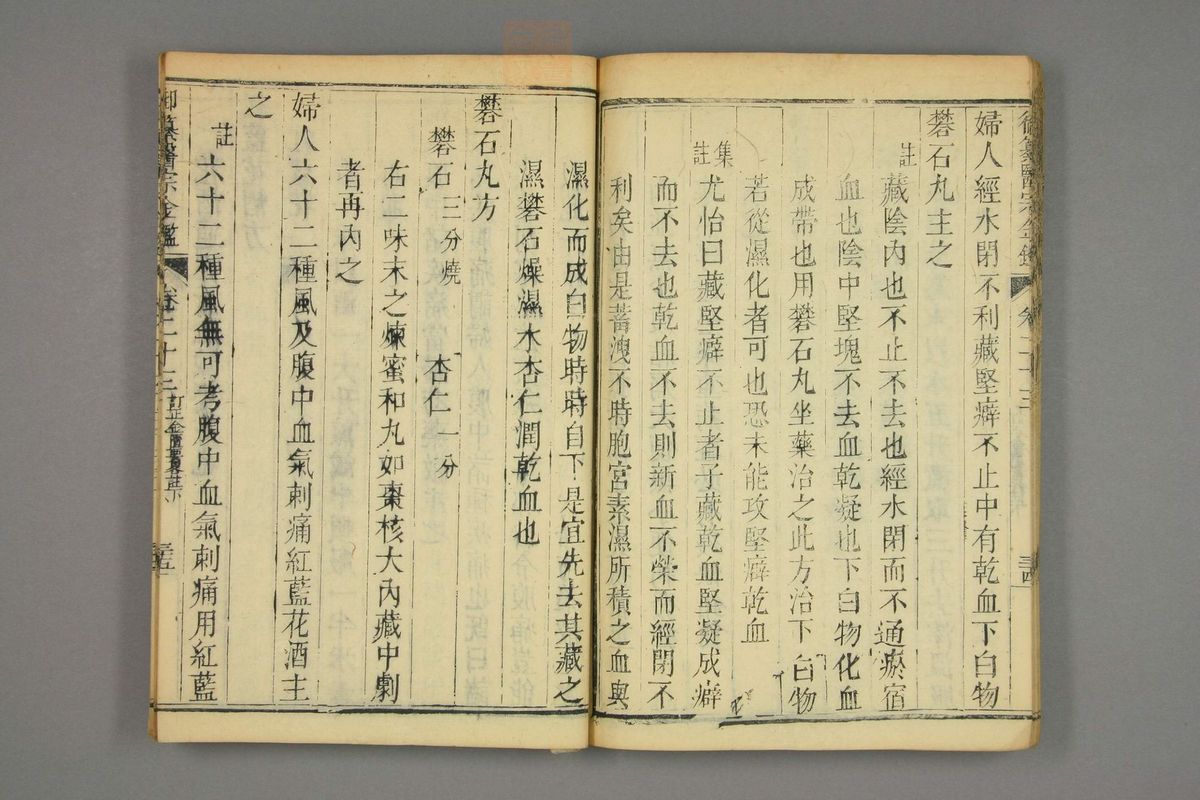 御纂醫宗金鑑 卷二十三 三四
婦人經水閉不利藏堅癖不止中有乾血下白物
礬石丸主之
註藏陰內也不止不去也經水閉而不通瘀宿
血也陰中堅塊不去血乾凝也下白物化血
成帶也用礬石丸坐藥治之此方治下白物
若從濕化者可也恐未能攻堅癖乾血
集註尤怡曰藏堅癖不止者子藏乾血堅凝成癖
而不去也乾血不去則新血不榮而經閉不
利矣由是蓄洩不時胞宮素濕所積之血與
濕化而成白物時時自下是宜先去其藏之
濕礬石燥濕水杏仁潤乾血也
礬石丸方
礬石三分燒 杏仁一分
右二味末之煉蜜和丸如棗核大內藏中劇
者再內之
婦人六十二種風及腹中血氣刺痛紅藍花酒主
之
註六十二種風無可考腹中血氣刺痛用紅藍
御纂醫宗金鑑 卷二十三 訂正金匱要畧註下 三五